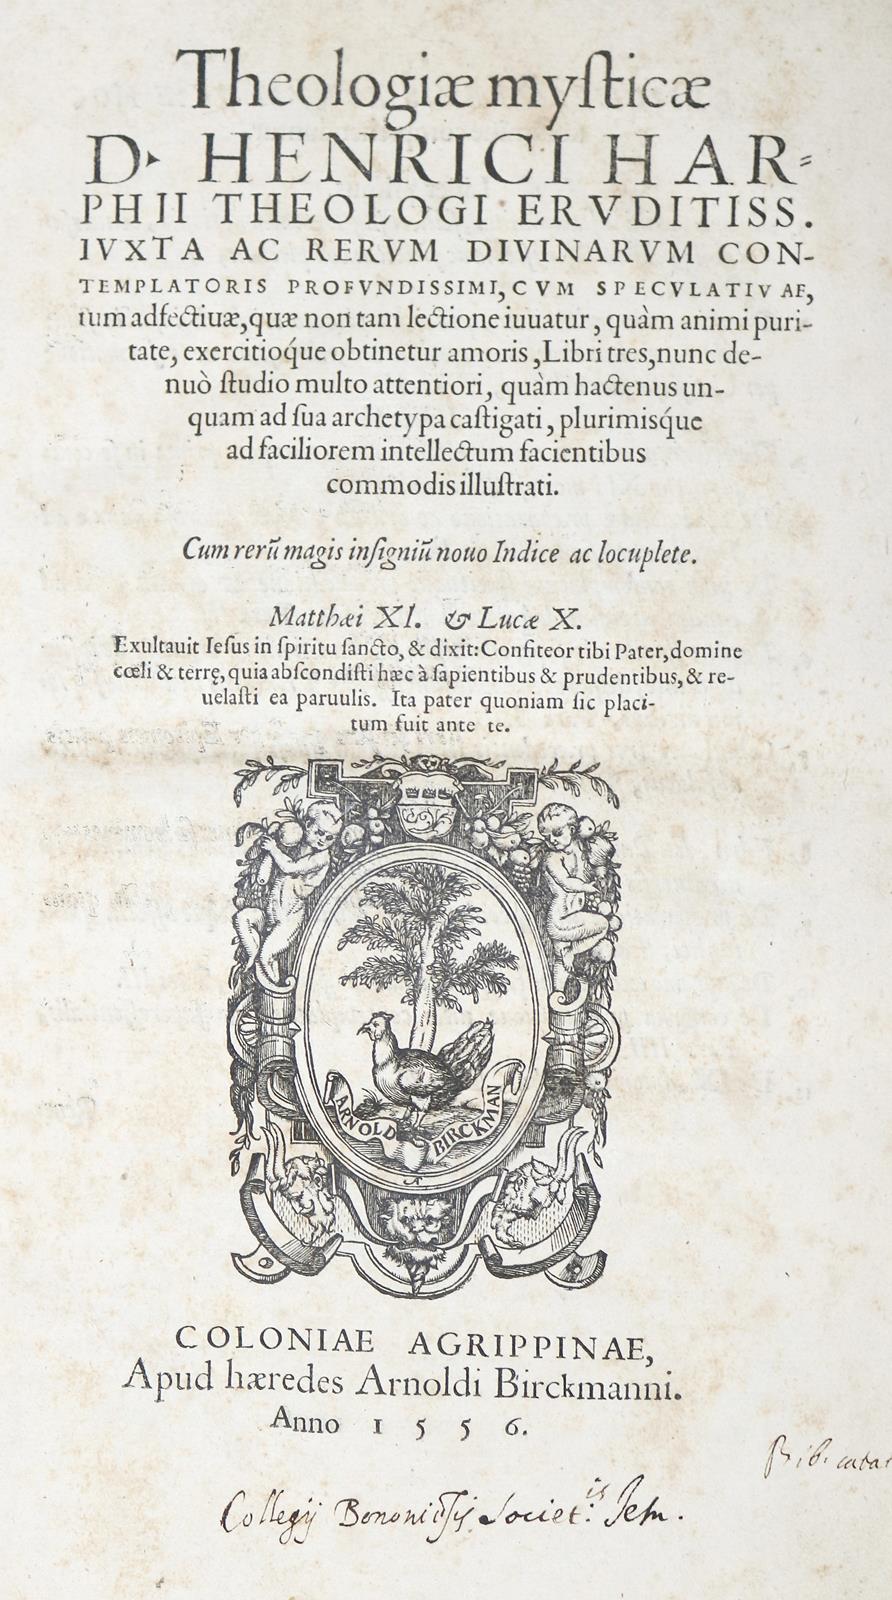 Theologiæ mysticæ
D. HENRICI HAR=
PHII THEOLOGI ERVDITISS.
IVXTA AC RERVM DIVINARVM CON-
TEMPLATORIS PROFVNDISSIMI, CVM SPECVLATIVAE,
tum adfectiuæ, quæ non tam lectione iuuatur, quàm animi puri-
tate, exercitioq́ue obtinetur amoris, Libri tres, nunc de-
nuò ſtudio multo attentiori, quàm hactenus un-
quam ad ſua archetypa caſtigati, plurimisq́ue
ad faciliorem intellectum facientibus
commodis illuſtrati.
Cum rerũ magis inſigniũ nouo Indice ac locuplete.
Matthæi XI. & Lucæ X.
Exultauit Ieſus in ſpiritu ſancto, & dixit: Confiteor tibi Pater, domine
cœli & terrę, quia abſcondiſti hæc à ſapientibus & prudentibus, & re-
uelaſti ea paruulis. Ita pater quoniam ſic placi-
tum fuit ante te.
ARNOLD BIRCKMAN
COLONIAE AGRIPPINAE,
Apud hæredes Arnoldi Birckmanni.
Anno 1556.
Bib.
Collegij Bononiẽſis Societ:is Jesu.